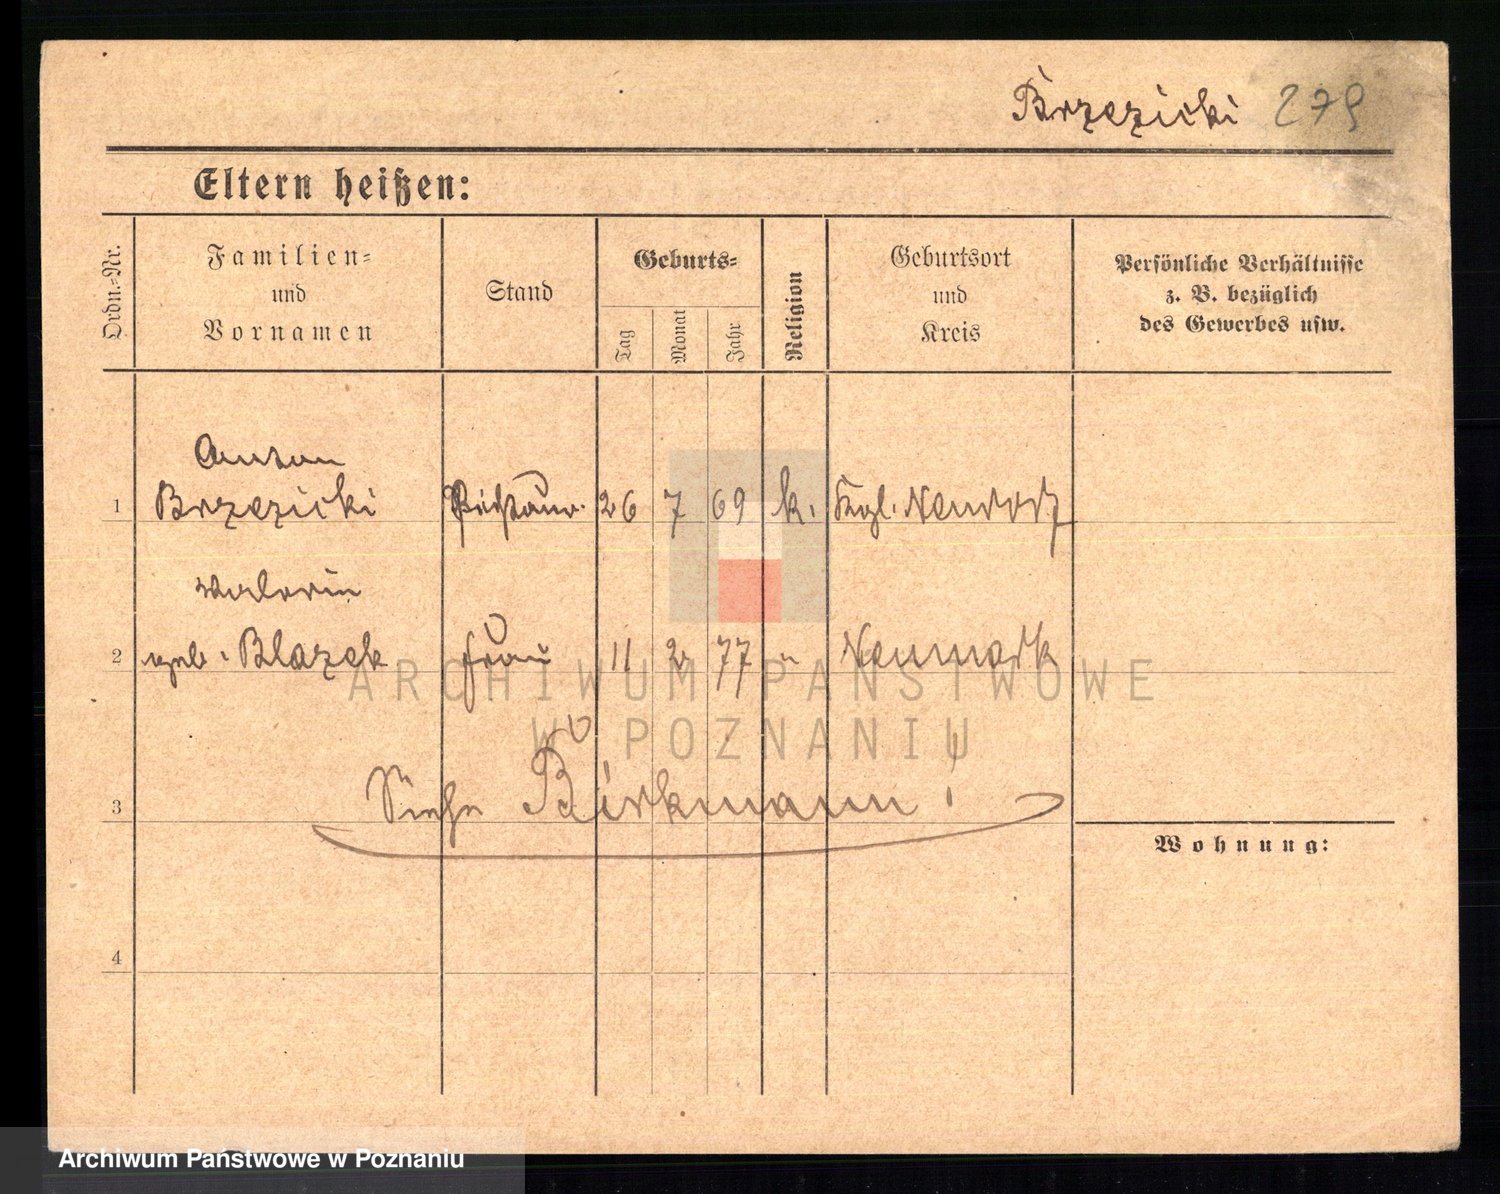 Brzezicki 279
Eltern heißen:
Ordn.-Nr.
Familien-
und
Vornamen
Stand
Geburts-
Tag
Monat
Jahr
Religion
Geburtsort
und
Kreis
Persönliche Verhältnisse
z. B. bezüglich
des Gewerbes usw.
Anton
1 Brzezicki 26 7 69 k. Kgl. Neudorf
Valerie
2 geb. Blazek Frau 11 2 77 " Neumark
ARCHIWUM PAŃSTWOWE
W POZNANIU
3 Siehe Birkmann!
Wohnung:
4
Archiwum Państwowe w Poznaniu